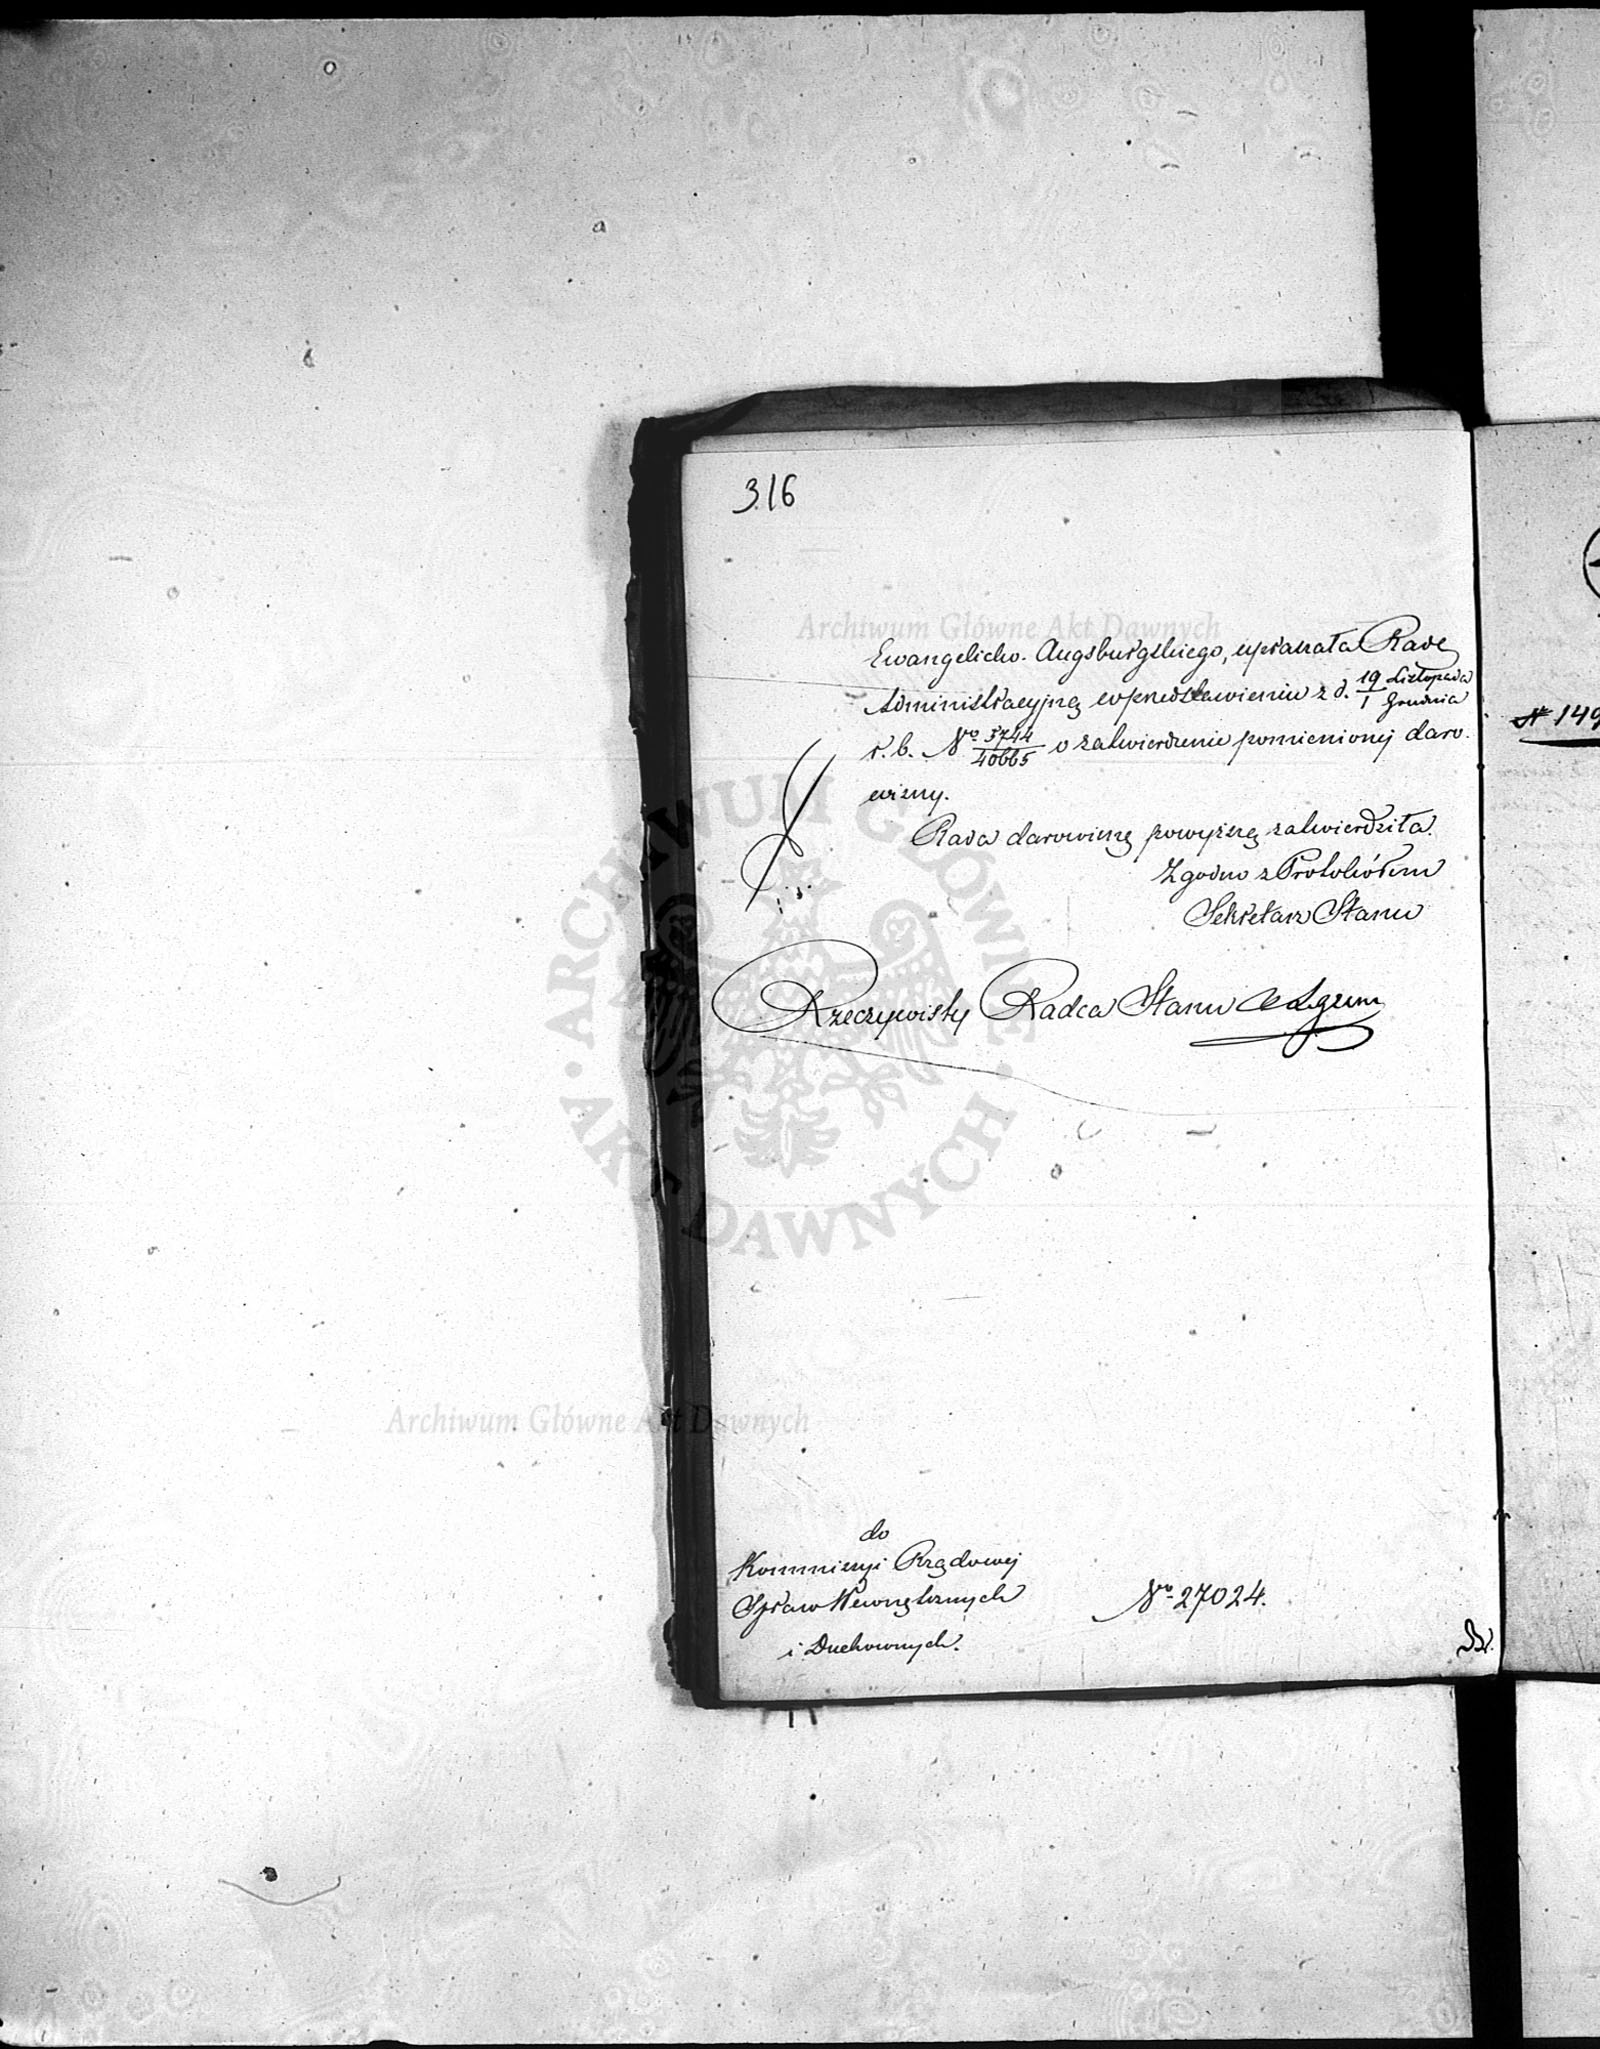 316
Archiwum Główne Akt Dawnych
Ewangelicko-Augsburgskiego, upraszała Radę
Administracyjną w przedstawieniu z d. 19/1 Listopada/Grudnia
r. b. No 3744/40665 o zatwierdzenie pomienionej daro-
wizny.
Rada darowiznę powyższą zatwierdziła.
Zgodno z Protokółem
Sekretarz Stanu
Rzeczywisty Radca Stanu
ARCHIWUM GŁÓWNE
AKT DAWNYCH
Archiwum Główne Akt Dawnych
do
Kommissyi Rządowej
Spraw Wewnętrznych
i Duchownych.
No 27024.
N 149